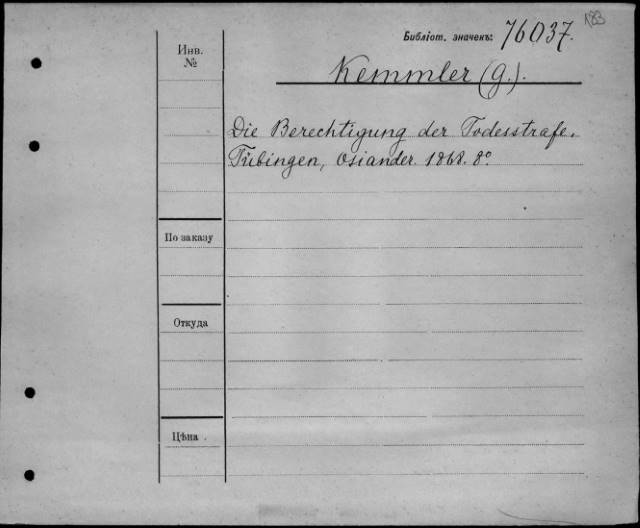 183
Библіот. значекъ: 76037.
Инв.
№
Kemmler (G.).
Die Berechtigung der Todesstrafe.
Tübingen, Osiander. 1868. 8º.
По заказу
Откуда
Цѣна